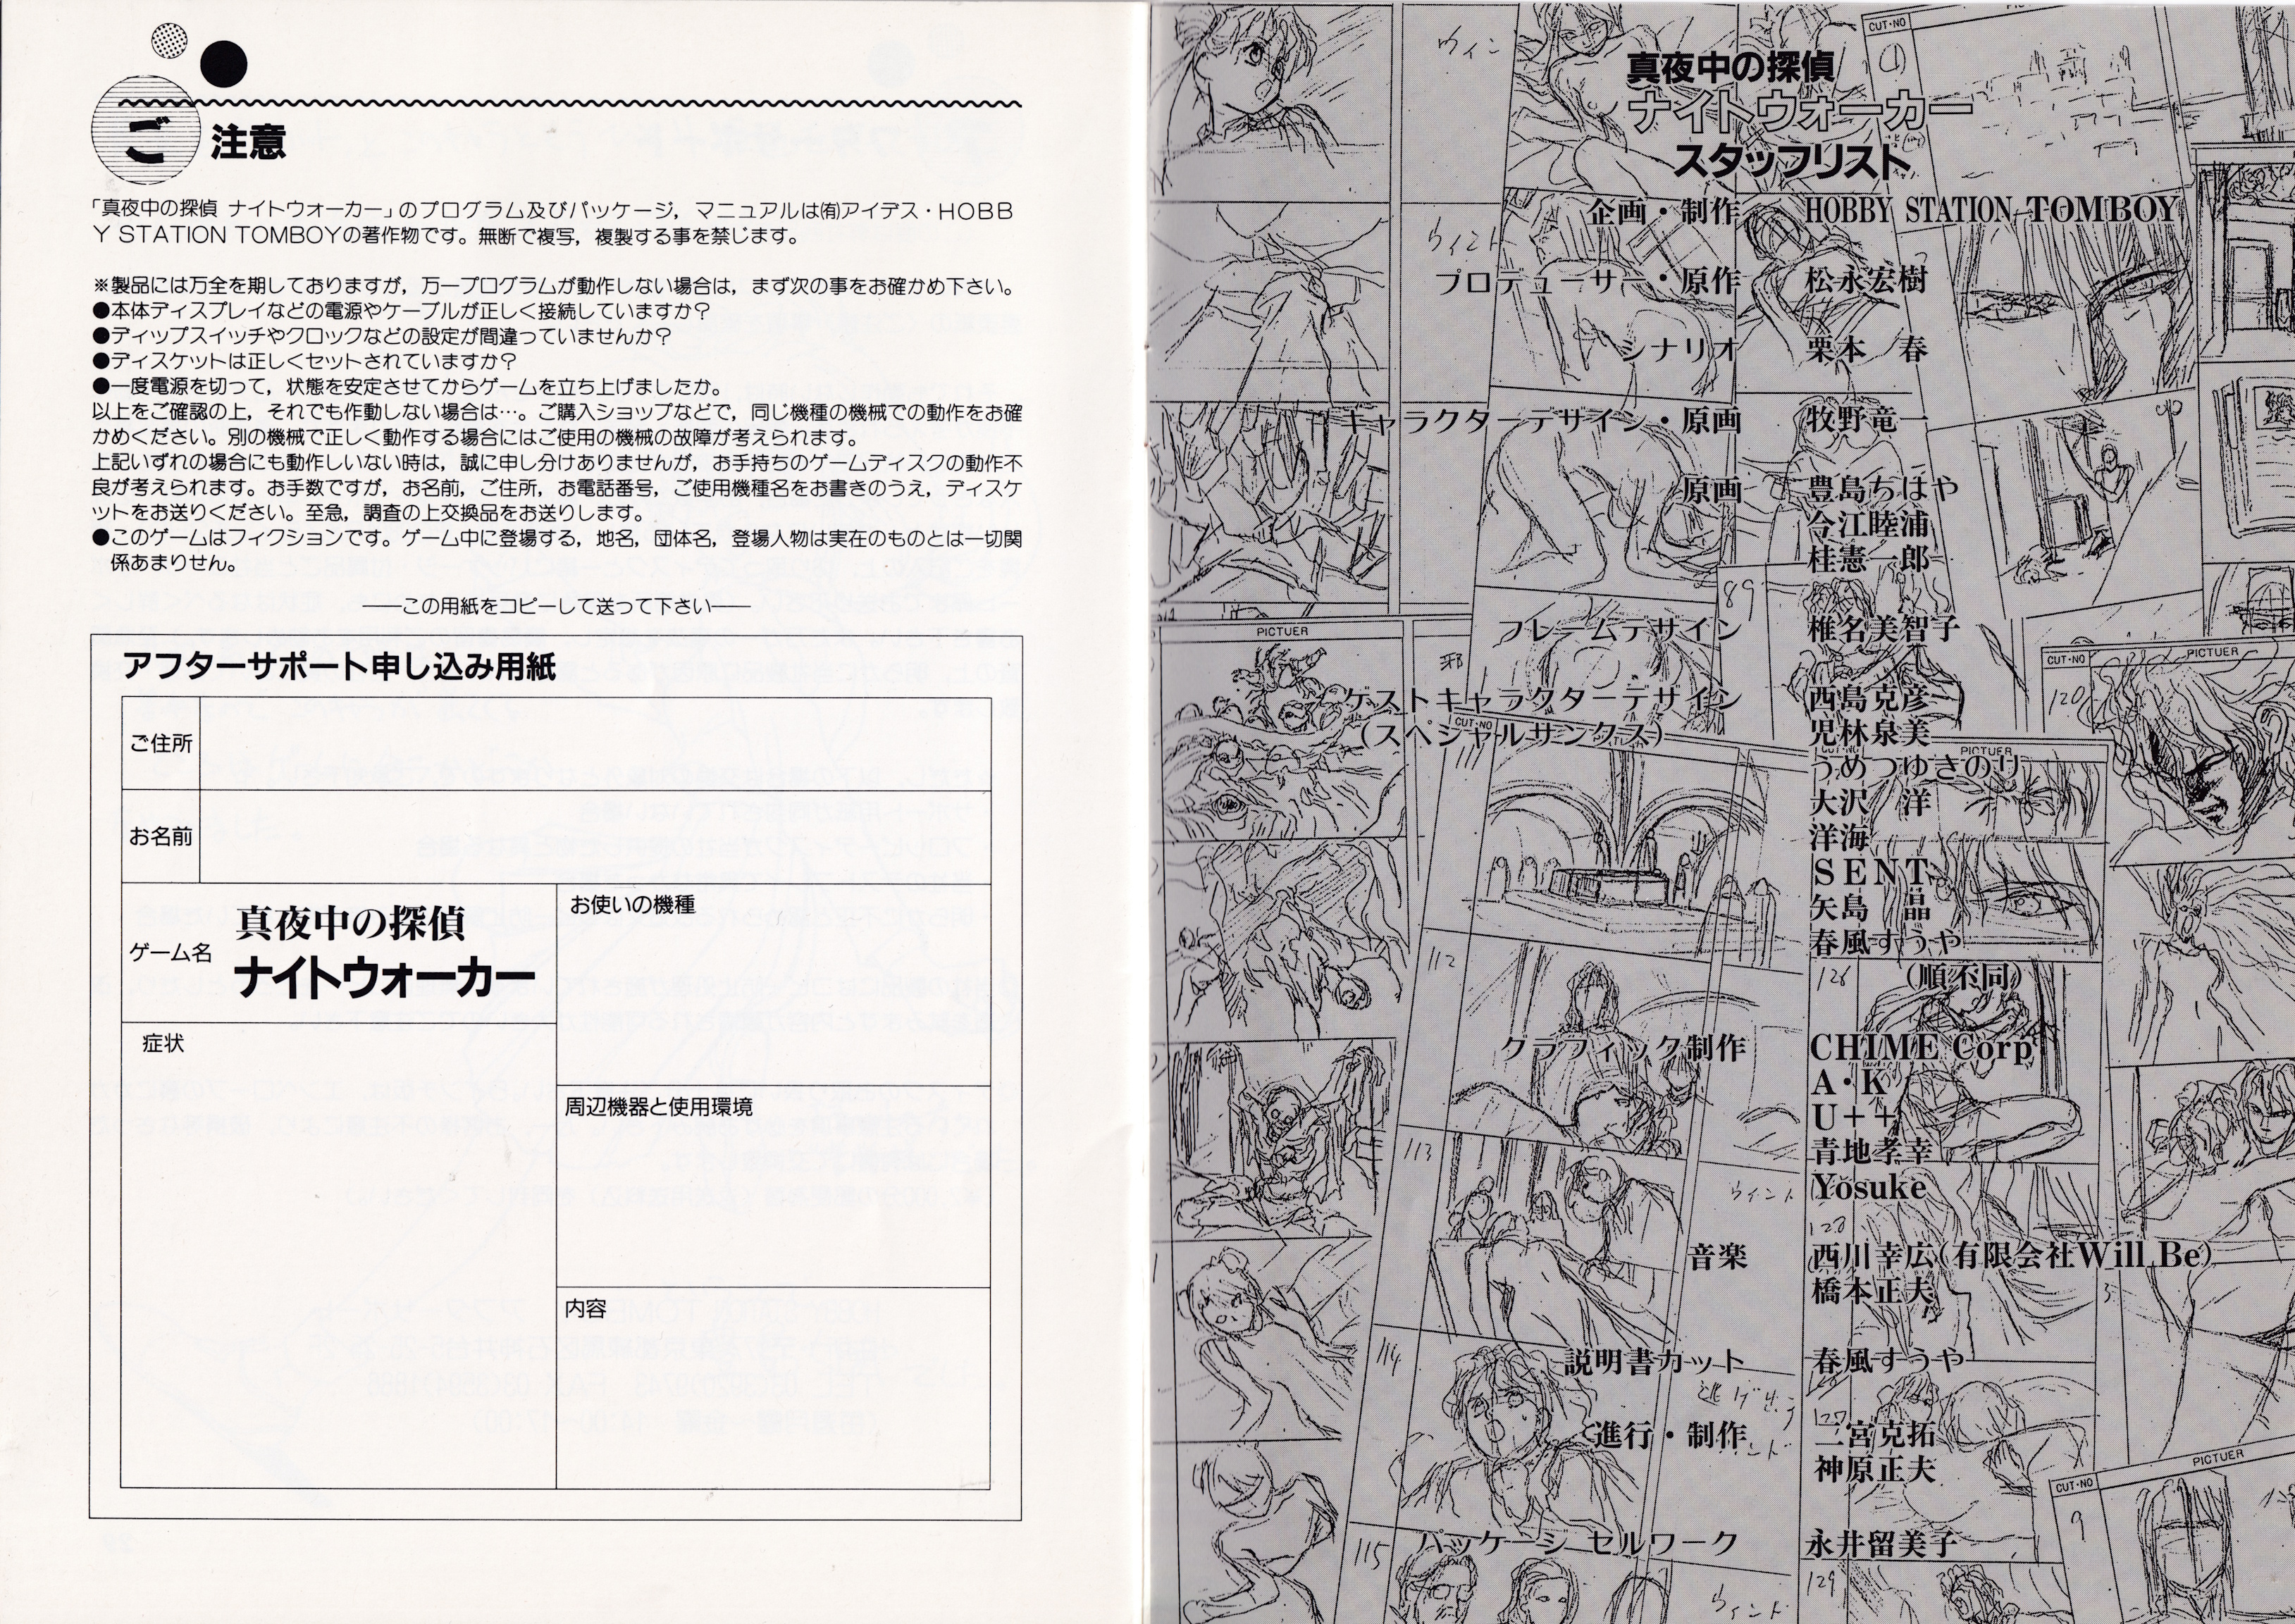 ご注意
「真夜中の探偵 ナイトウォーカー」のプログラム及びパッケージ，マニュアルは㈲アイデス・HOBB
Y STATION TOMBOYの著作物です。無断で複写，複製する事を禁じます。
※製品には万全を期しておりますが，万一プログラムが動作しない場合は，まず次の事をお確かめ下さい。
●本体ディスプレイなどの電源やケーブルが正しく接続していますか？
●ディップスイッチやクロックなどの設定が間違っていませんか？
●ディスケットは正しくセットされていますか？
●一度電源を切って，状態を安定させてからゲームを立ち上げましたか。
以上をご確認の上，それでも作動しない場合は…。ご購入ショップなどで，同じ機種の機械での動作をお確
かめください。別の機械で正しく動作する場合にはご使用の機械の故障が考えられます。
上記いずれの場合にも動作しいない時は，誠に申し分けありませんが，お手持ちのゲームディスクの動作不
良が考えられます。お手数ですが，お名前，ご住所，お電話番号，ご使用機種名をお書きのうえ，ディスケ
ットをお送りください。至急，調査の上交換品をお送りします。
●このゲームはフィクションです。ゲーム中に登場する，地名，団体名，登場人物は実在のものとは一切関
係あまりせん。
――この用紙をコピーして送って下さい――
アフターサポート申し込み用紙
ご住所
お名前
ゲーム名
真夜中の探偵
ナイトウォーカー
お使いの機種
症状
周辺機器と使用環境
内容
真夜中の探偵
ナイトウォーカー
スタッフリスト
企画・制作 HOBBY STATION TOMBOY
プロデューサー・原作 松永宏樹
シナリオ 栗本　春
キャラクターデザイン・原画 牧野竜一
原画 豊島ちはや
今江睦浦
桂憲一郎
フレームデザイン 椎名美智子
ゲストキャラクターデザイン 西島克彦
（スペシャルサンクス） 児林泉美
うめつゆきのり
大沢　洋
洋海
SENT
矢島　晶
春風すうや
（順不同）
クラフィック制作 CHIME Corp
A・K
U＋＋
青地孝幸
Yosuke
音楽 西川幸広（有限会社Will Be）
橋本正夫
説明書カット 春風すうや
進行・制作 二宮克拓
神原正夫
パッケージ セルワーク 永井留美子
CUT・NO
PICTUER
CUT・NO
PICTUER
120
CUT・NO
111
PICTUER
89
112
113
114
115
126
128
127
129
CUT・NO
PICTUER
9
ウィンド